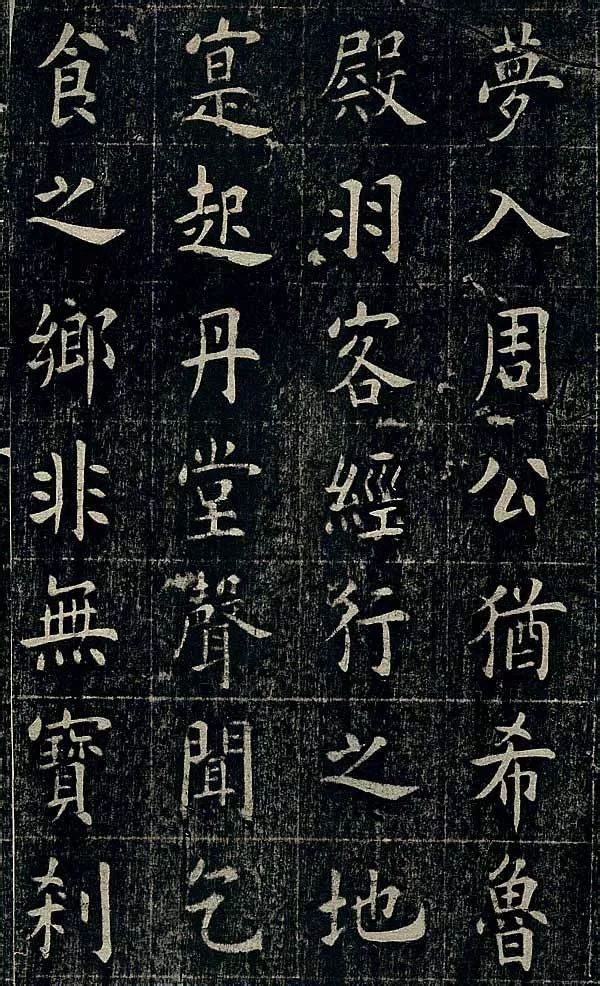 夢入周公猶希魯
殿羽客經行之地
寔起丹堂聲聞乞
食之鄉非無寶刹